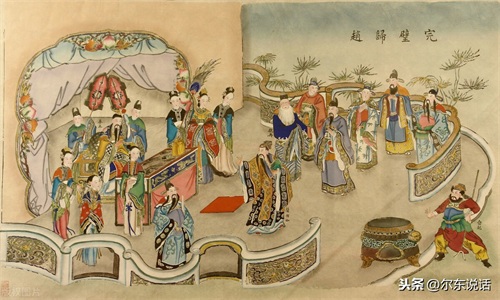 完璧歸趙
头条 @尔东说话